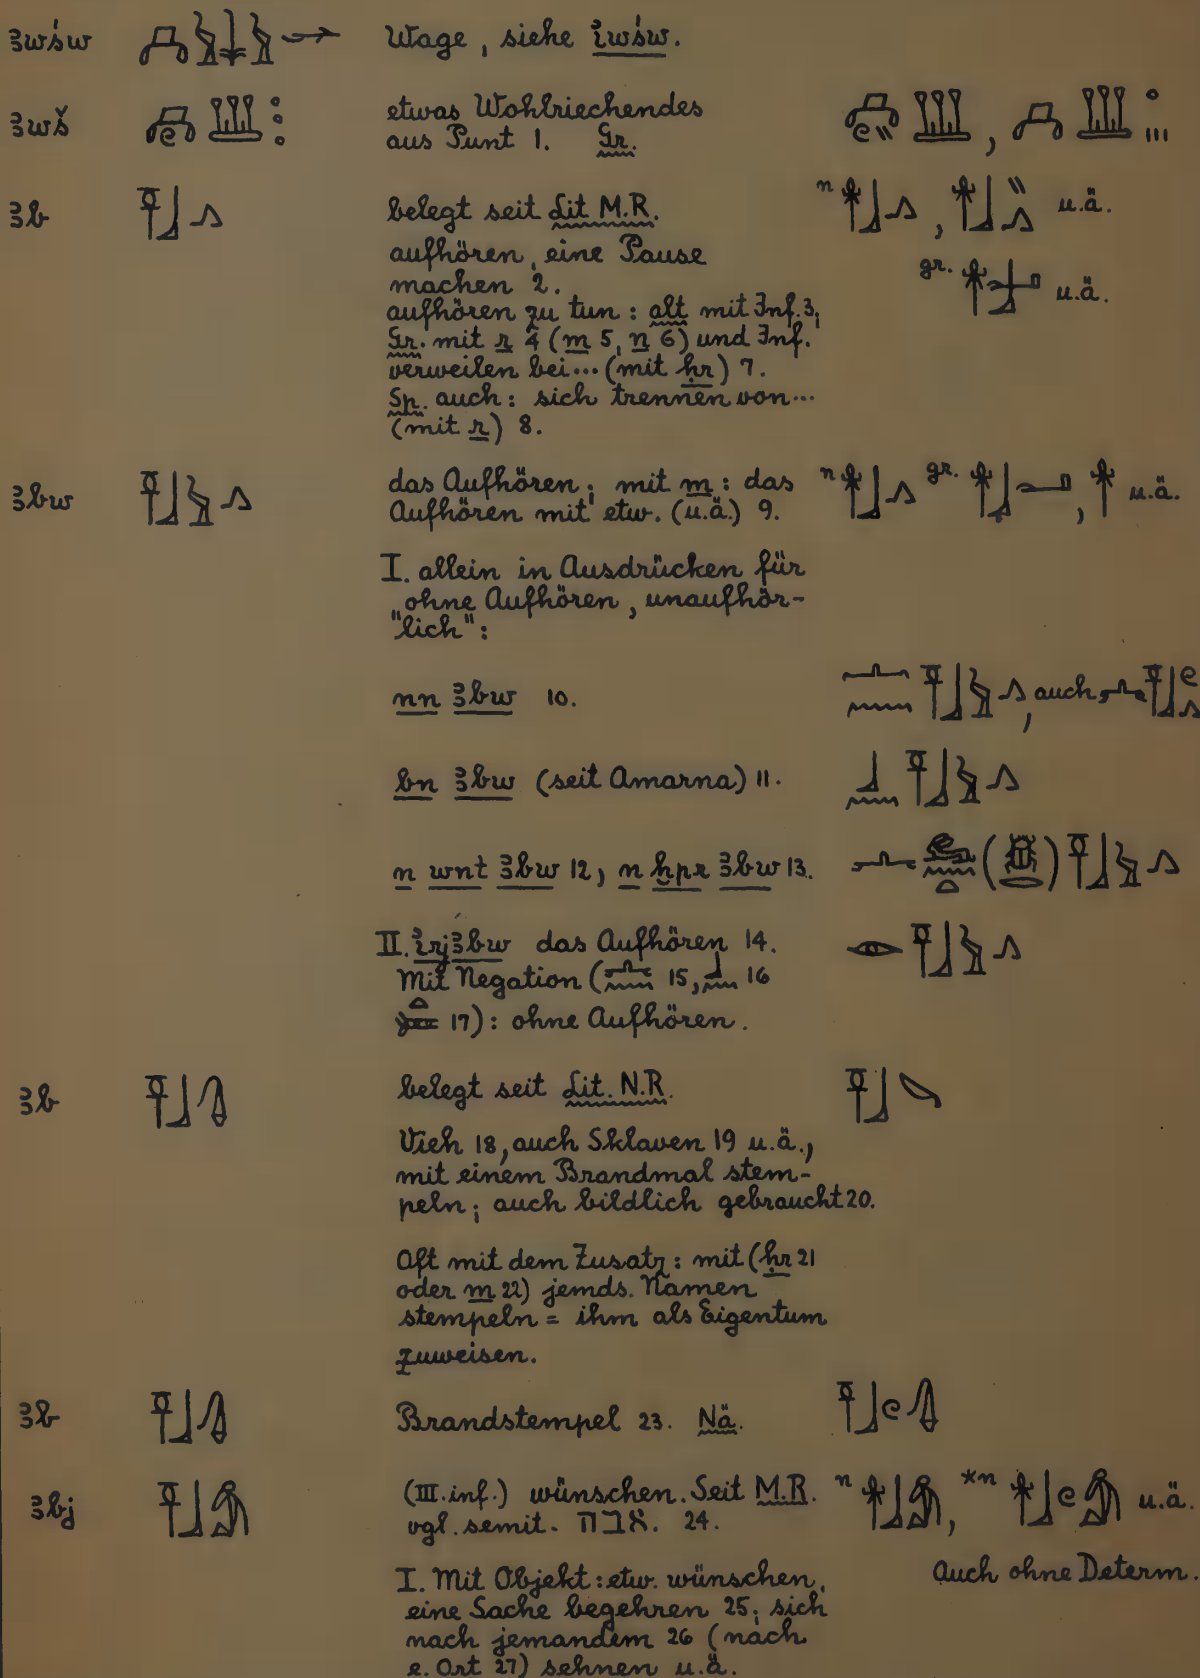 ꜣwśw Wage, siehe i҆wśw.
ꜣwš etwas Wohlriechendes
aus Punt 1. Gr.
ꜣb belegt seit Lit M.R. n , u.ä.
aufhören, eine Pause gr. u.ä.
machen 2.
aufhören zu tun: alt mit Inf. 3;
Gr. mit r 4 (m 5, n 6) und Inf.
verweilen bei... (mit ḥr) 7.
Sp. auch: sich trennen von...
(mit r) 8.
ꜣbw das Aufhören; mit m: das n gr. , u.ä.
Aufhören mit etw. (u.ä.) 9.
I. allein in Ausdrücken für
"ohne Aufhören, unaufhör-
lich":
nn ꜣbw 10. , auch
bn ꜣbw (seit Amarna) 11.
n wnt ꜣbw 12, n ḫpr ꜣbw 13. ( )
II. i҆rj ꜣbw das Aufhören 14.
Mit Negation ( 15, 16
17): ohne Aufhören.
ꜣb belegt seit Lit. N.R.
Vieh 18, auch Sklaven 19 u.ä.,
mit einem Brandmal stem-
peln; auch bildlich gebraucht 20.
Oft mit dem Zusatz: mit (ḥr 21
oder m 22) jemds. Namen
stempeln = ihm als Eigentum
zuweisen.
ꜣb Brandstempel 23. Nä.
ꜣbj (III. inf.) wünschen. Seit M.R. n , *n u.ä.
vgl. semit. אבה. 24.
I. Mit Objekt: etw. wünschen, Auch ohne Determ.
eine Sache begehren 25; sich
nach jemandem 26 (nach
e. Ort 27) sehnen u.ä.